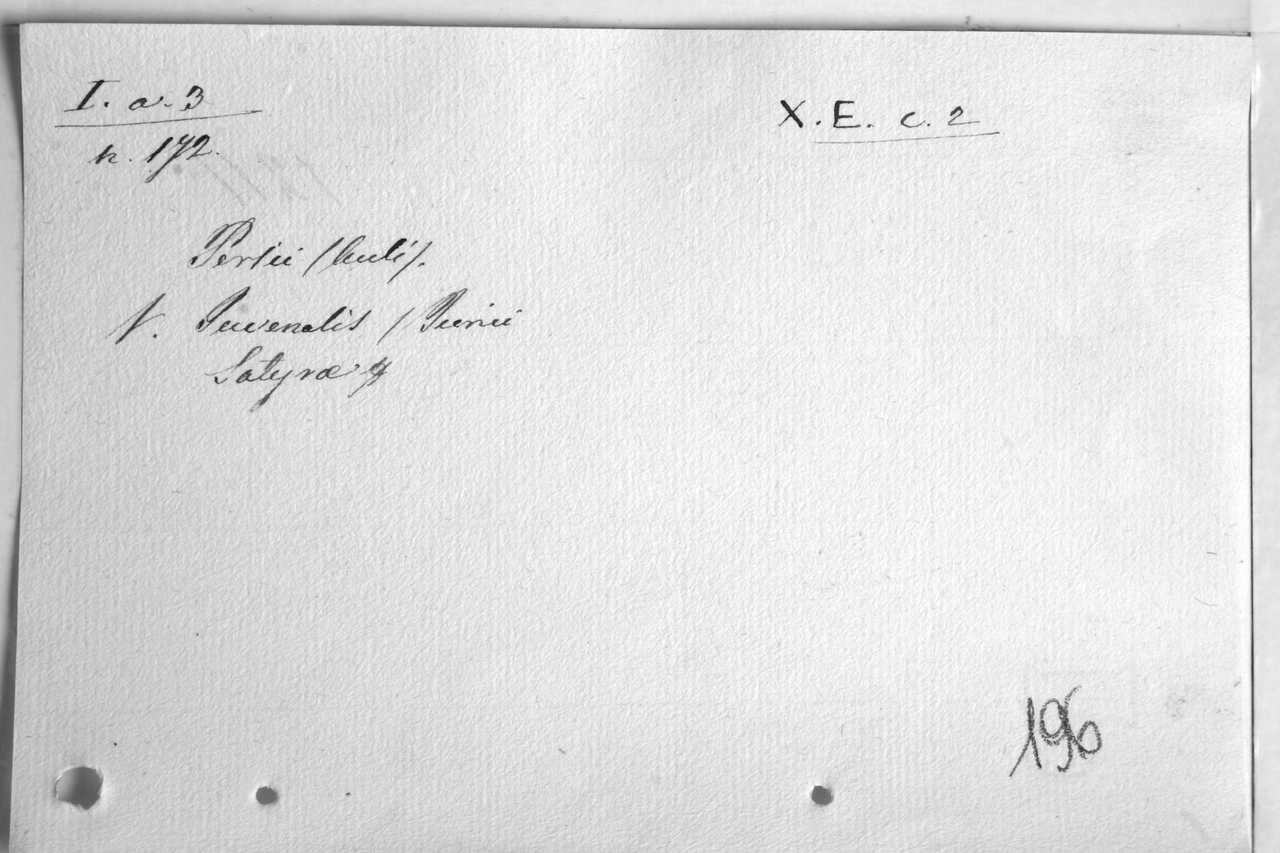 I. a. 3
X. E. c. 2
n. 172.
Persii (Auli).
V. Juvenalis (Junii
Satyræ
196